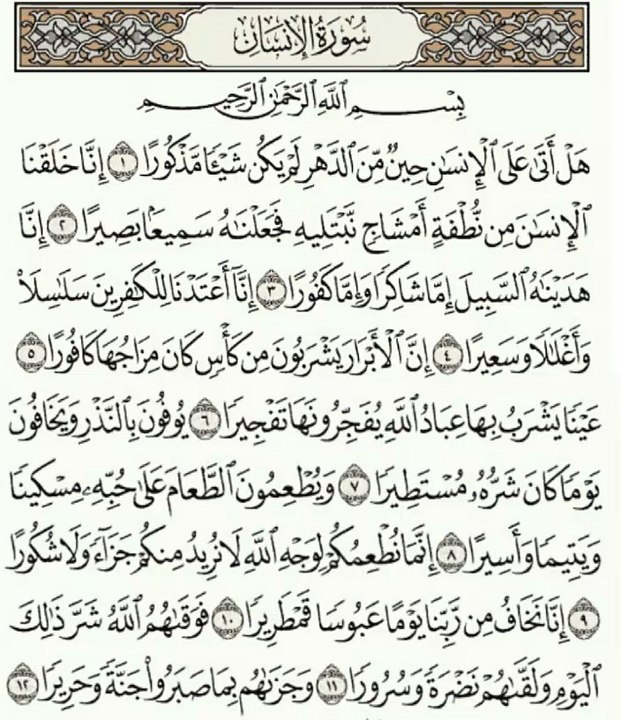 سُورَةُ الإِنسَانِ
بِسْمِ ٱللَّهِ ٱلرَّحْمَٰنِ ٱلرَّحِيمِ
هَلْ أَتَىٰ عَلَى ٱلْإِنسَٰنِ حِينٌ مِّنَ ٱلدَّهْرِ لَمْ يَكُن شَيْـًٔا مَّذْكُورًا ١ إِنَّا خَلَقْنَا
ٱلْإِنسَٰنَ مِن نُّطْفَةٍ أَمْشَاجٍ نَّبْتَلِيهِ فَجَعَلْنَٰهُ سَمِيعًۢا بَصِيرًا ٢ إِنَّا
هَدَيْنَٰهُ ٱلسَّبِيلَ إِمَّا شَاكِرًا وَإِمَّا كَفُورًا ٣ إِنَّآ أَعْتَدْنَا لِلْكَٰفِرِينَ سَلَٰسِلَا۟
وَأَغْلَٰلًا وَسَعِيرًا ٤ إِنَّ ٱلْأَبْرَارَ يَشْرَبُونَ مِن كَأْسٍ كَانَ مِزَاجُهَا كَافُورًا ٥
عَيْنًا يَشْرَبُ بِهَا عِبَادُ ٱللَّهِ يُفَجِّرُونَهَا تَفْجِيرًا ٦ يُوفُونَ بِٱلنَّذْرِ وَيَخَافُونَ
يَوْمًا كَانَ شَرُّهُۥ مُسْتَطِيرًا ٧ وَيُطْعِمُونَ ٱلطَّعَامَ عَلَىٰ حُبِّهِۦ مِسْكِينًا
وَيَتِيمًا وَأَسِيرًا ٨ إِنَّمَا نُطْعِمُكُمْ لِوَجْهِ ٱللَّهِ لَا نُرِيدُ مِنكُمْ جَزَآءً وَلَا شُكُورًا
٩ إِنَّا نَخَافُ مِن رَّبِّنَا يَوْمًا عَبُوسًا قَمْطَرِيرًا ١٠ فَوَقَىٰهُمُ ٱللَّهُ شَرَّ ذَٰلِكَ
ٱلْيَوْمِ وَلَقَّىٰهُمْ نَضْرَةً وَسُرُورًا ١١ وَجَزَىٰهُم بِمَا صَبَرُوا۟ جَنَّةً وَحَرِيرًا ١٢